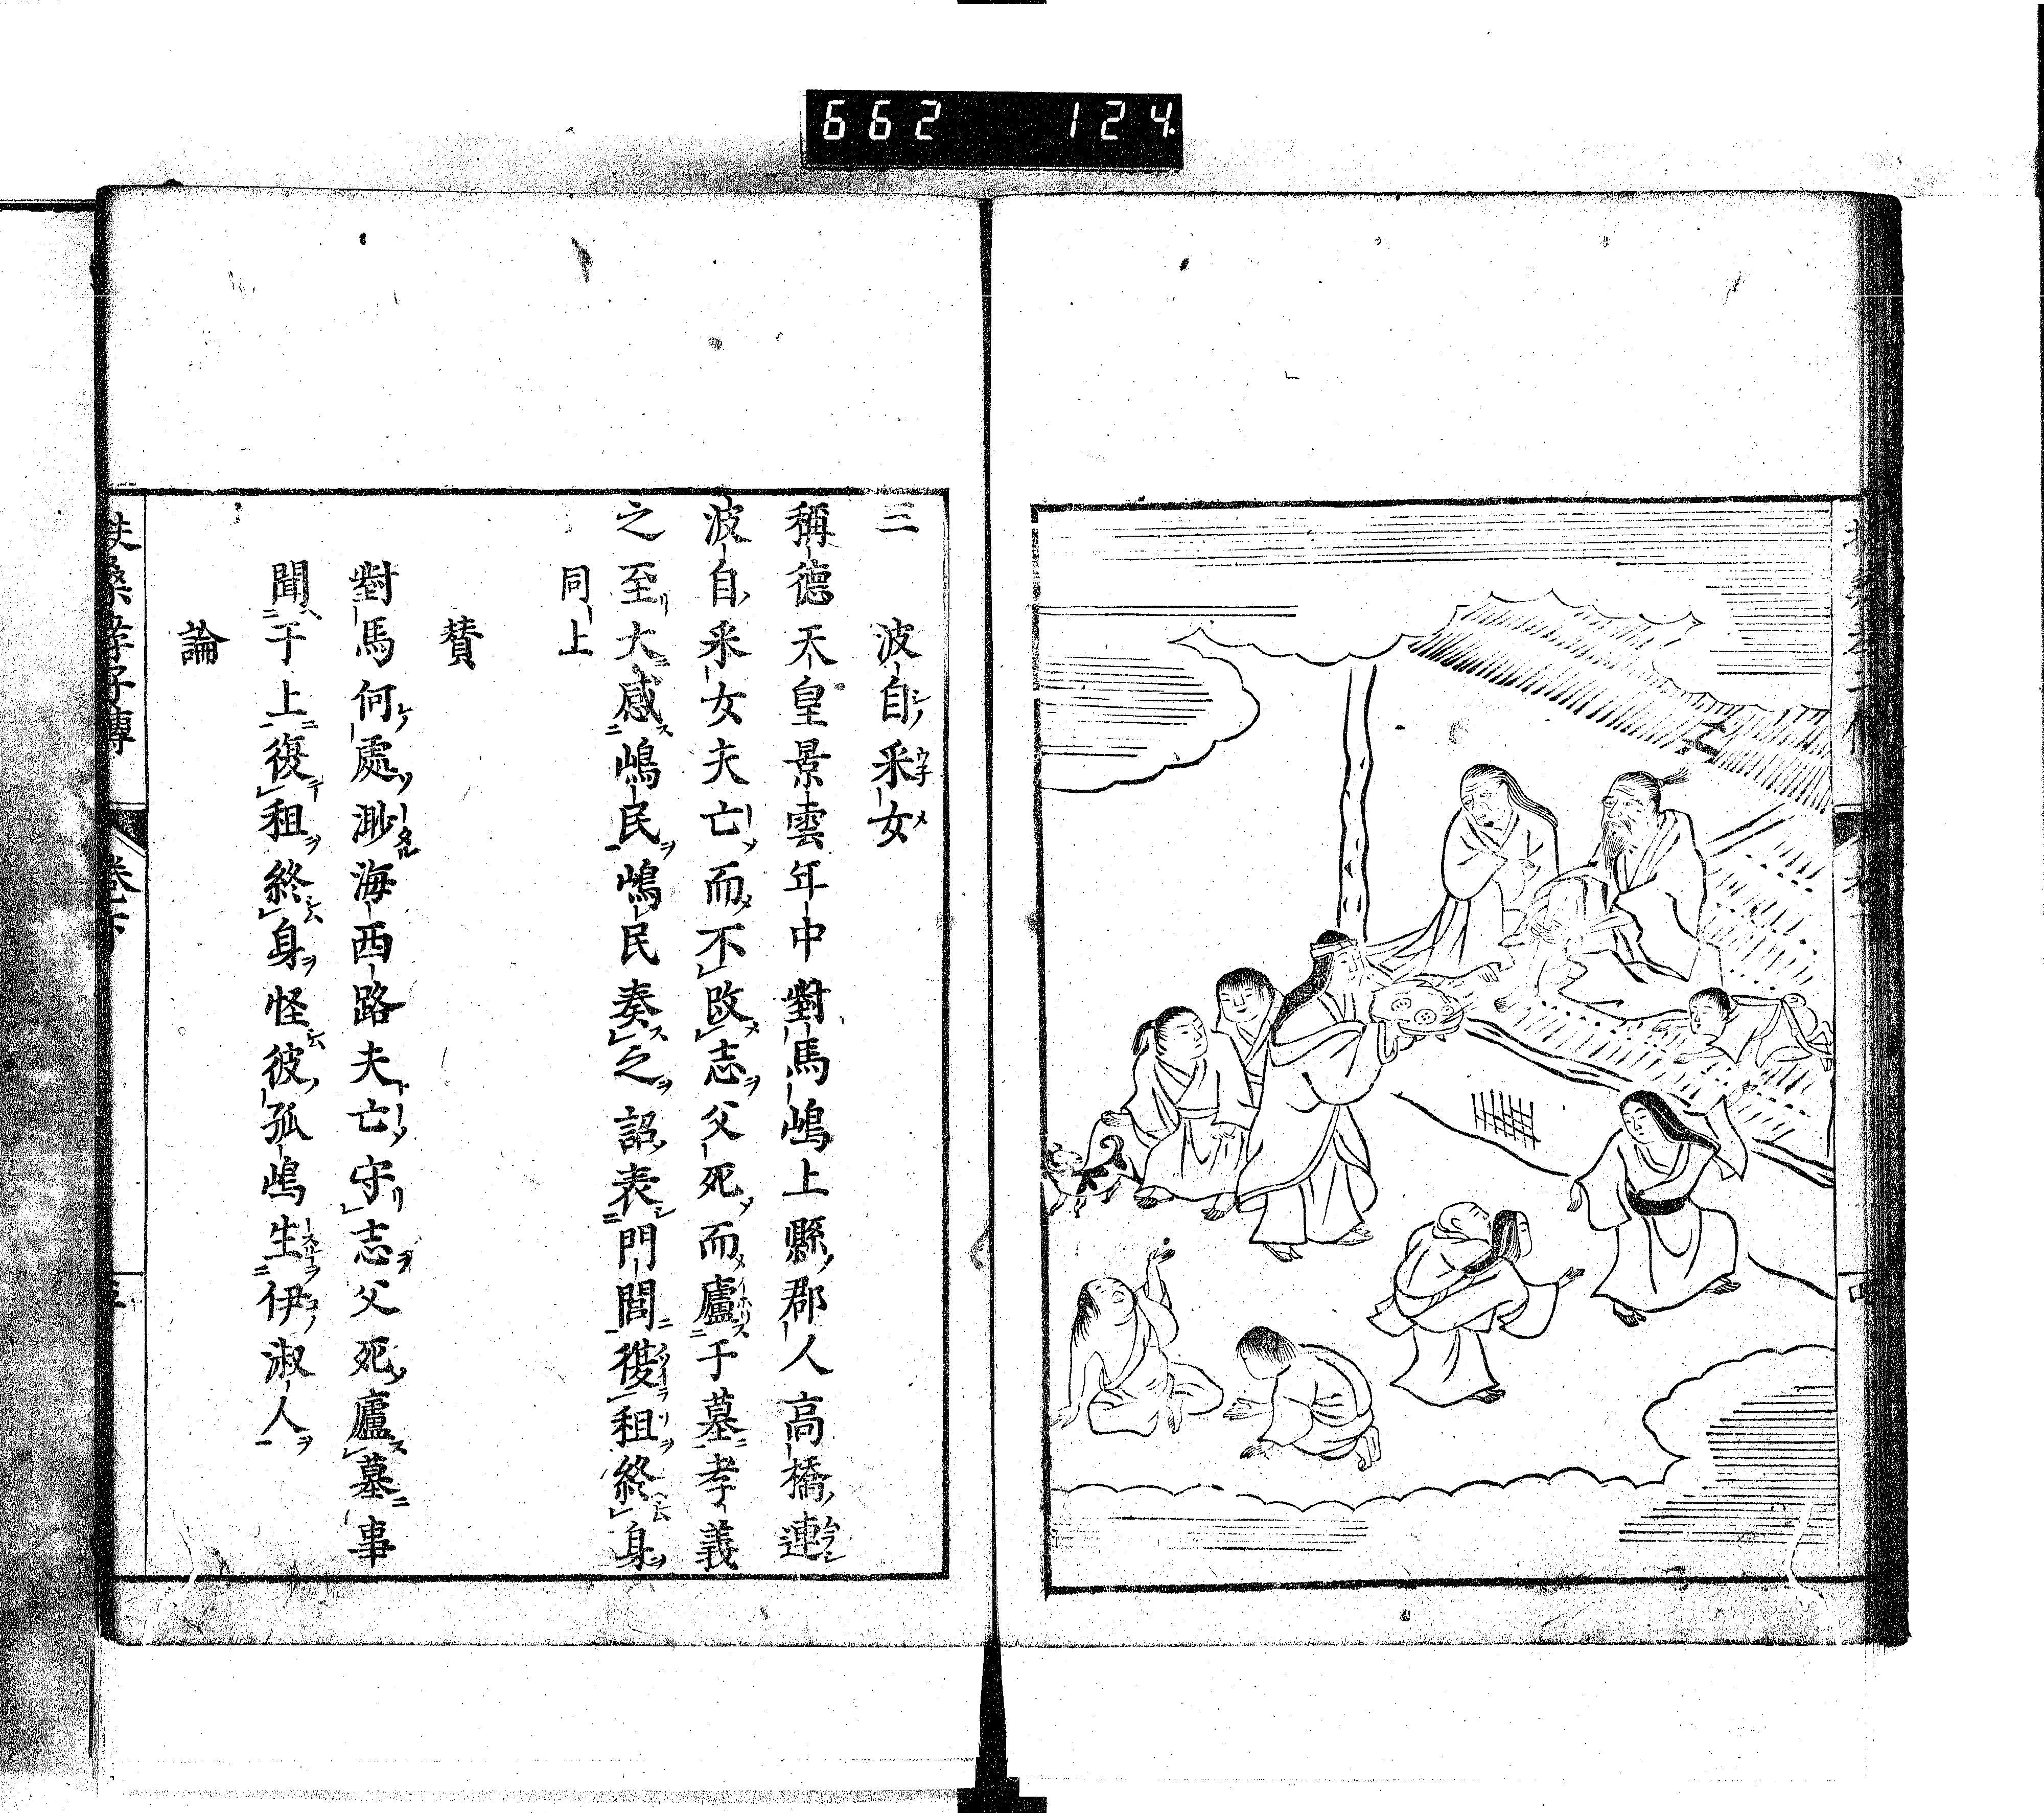 662 124
三 波自采女
稱德天皇景雲年中對馬嶋上縣郡人高橋連
波自采女夫亡而不改志父死而廬于墓孝義
之至大感嶋民嶋民奏之詔表門閭復租終身
同上
賛
對馬何處渺海西路夫亡守志父死廬墓事
聞于上復租終身怪彼孤嶋生伊淑人
論
扶桑孝子傳 卷下